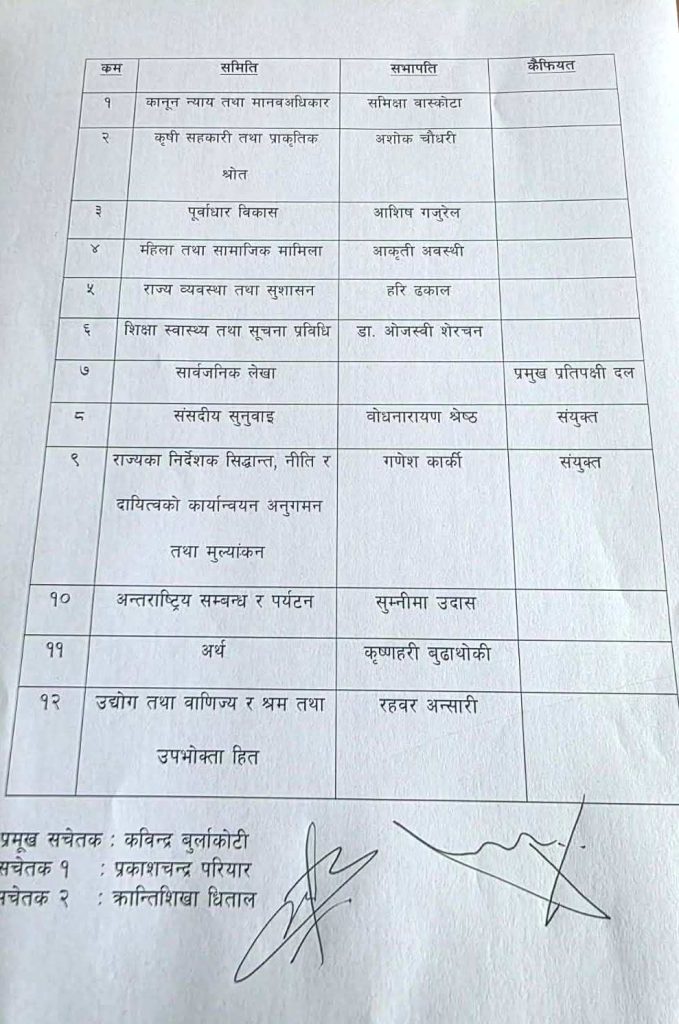 कम समिति सभापति कैफियत
१ कानून न्याय तथा मानवअधिकार समिक्षा वास्कोटा
२ कृषी सहकारी तथा प्राकृतिक अशोक चौधरी
श्रोत
३ पूर्वाधार विकास आशिष गजुरेल
४ महिला तथा सामाजिक मामिला आकृती अवस्थी
५ राज्य व्यवस्था तथा सुशासन हरि ढकाल
६ शिक्षा स्वास्थ्य तथा सूचना प्रविधि डा. ओजस्वी शेरचन
७ सार्वजनिक लेखा प्रमुख प्रतिपक्षी दल
८ संसदीय सुनुवाइ वोधनारायण श्रेष्ठ संयुक्त
९ राज्यका निर्देशक सिद्धान्त, नीति र गणेश कार्की संयुक्त
दायित्वको कार्यान्वयन अनुगमन
तथा मुल्यांकन
१० अन्तराष्ट्रिय सम्बन्ध र पर्यटन सुम्नीमा उदास
११ अर्थ कृष्णहरी बुढाथोकी
१२ उद्योग तथा वाणिज्य र श्रम तथा रहवर अन्सारी
उपभोक्ता हित
प्रमूख सचेतक : कविन्द्र बुर्लाकोटी
सचेतक १ : प्रकाशचन्द्र परियार
सचेतक २ : क्रान्तिशिखा धिताल